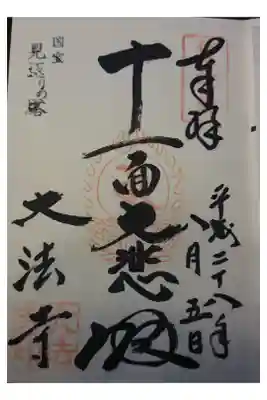 奉拝
平成二十八年
八月五日
十一面大悲殿
大法寺
国宝
見返りの塔